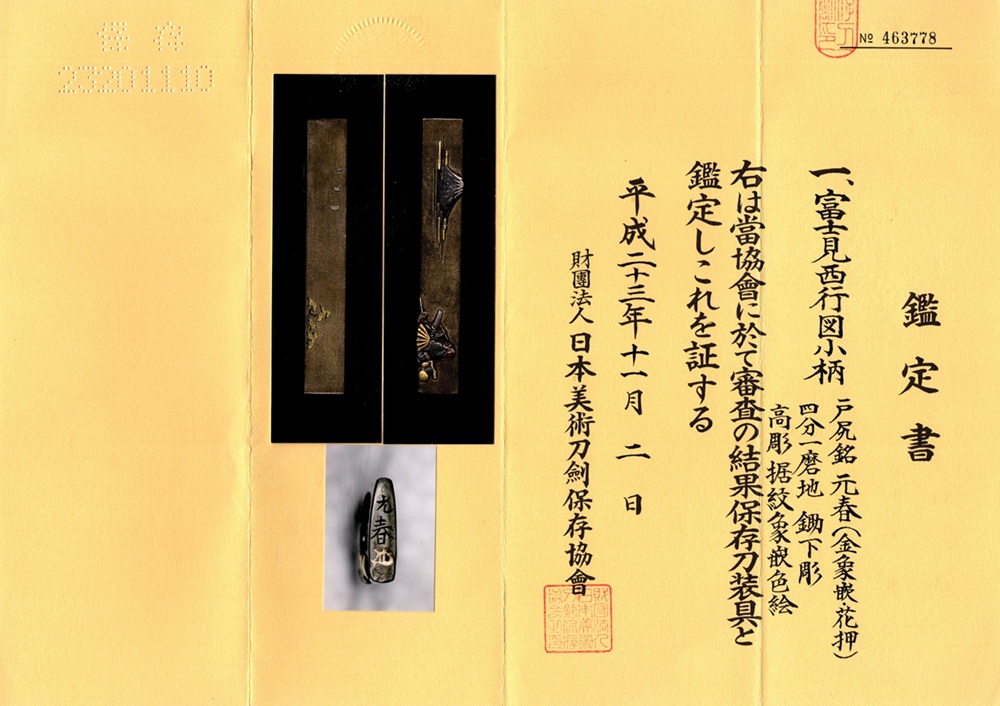 № 463778
鑑定書
一、富士見西行図小柄
戸尻銘 元春(金象嵌・花押)
四分一磨地 鋤下彫
高彫 据紋象嵌色絵
右は當協會に於て審査の結果保存刀装具と
鑑定しこれを証する
平成二十三年十一月二日
財團法人 日本美術刀劍保存協會
元春
保存
23201110